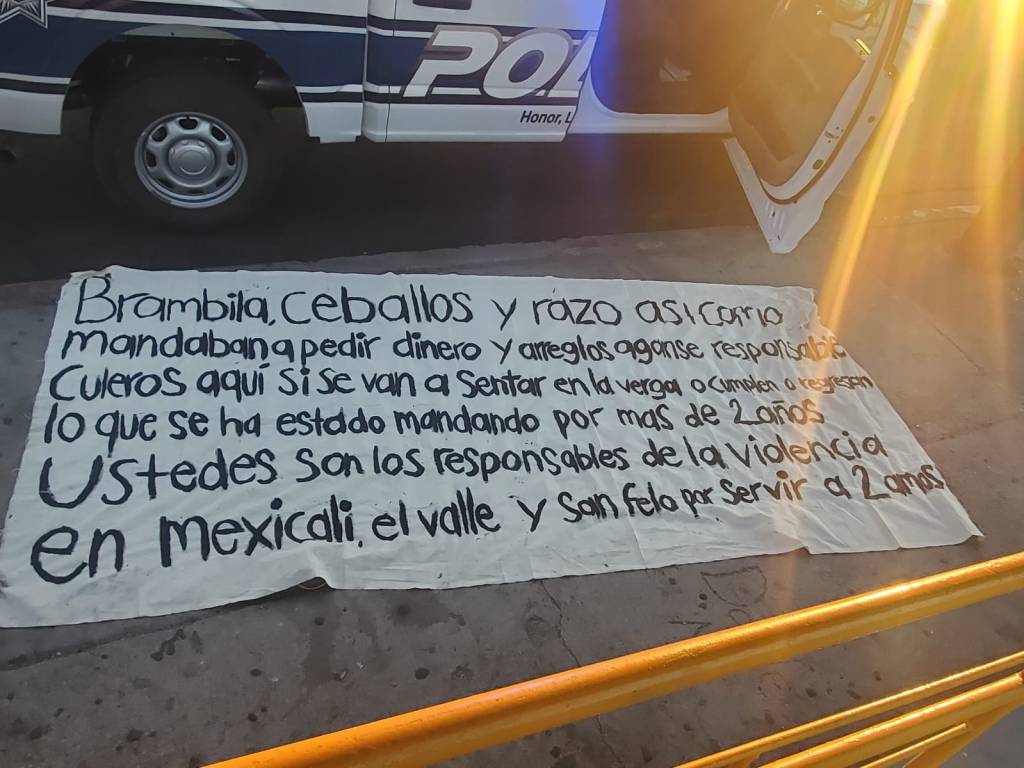 POL
Honor, L
Brambila, Ceballos y razo así como
mandaban a pedir dinero y arreglos aganse responsable
Culeros aquí si se van a sentar en la verga o cumplen o regresen
lo que se ha estado mandando por mas de 2 años
Ustedes son los responsables de la violencia
en mexicali, el valle y san felo por servir a 2 amos